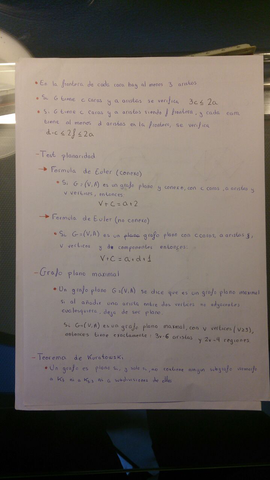 • En la frontera de cada cara hay al menos 3 aristas
• Si G tiene c caras y a aristas se verifica 3c ≤ 2a
• Si G tiene c caras y a aristas siendo f frontera, y cada cara
tiene al menos d aristas en la frontera, se verifica
d·c ≤ 2f ≤ 2a
- Test planaridad
→ Formula de Euler (conexo)
• Si G=(V,A) es un grafo plano y conexo, con c caras, a aristas y
v vertices, entonces
V+C=a+2
→ Formula de Euler (no conexo)
• Si G=(V,A) es un grafo plano con c caras, a aristas,
v vertices y d componentes entonces
V+C=a+d+1
- Grafo plano maximal
• Un grafo plano G=(V,A) se dice que es un grafo plano maximal
si al añadir una arista entre dos vertices no adyacentes
deja de ser plano
Si G=(V,A) es un grafo plano maximal, con v vertices (V≥3),
entonces tiene exactamente 3v-6 aristas y 2v-4 regiones
- Teorema de Kuratowski
• Un grafo es plano si y solo si no contiene ningun subgrafo
a K5 o K3,3 o subdivisiones de